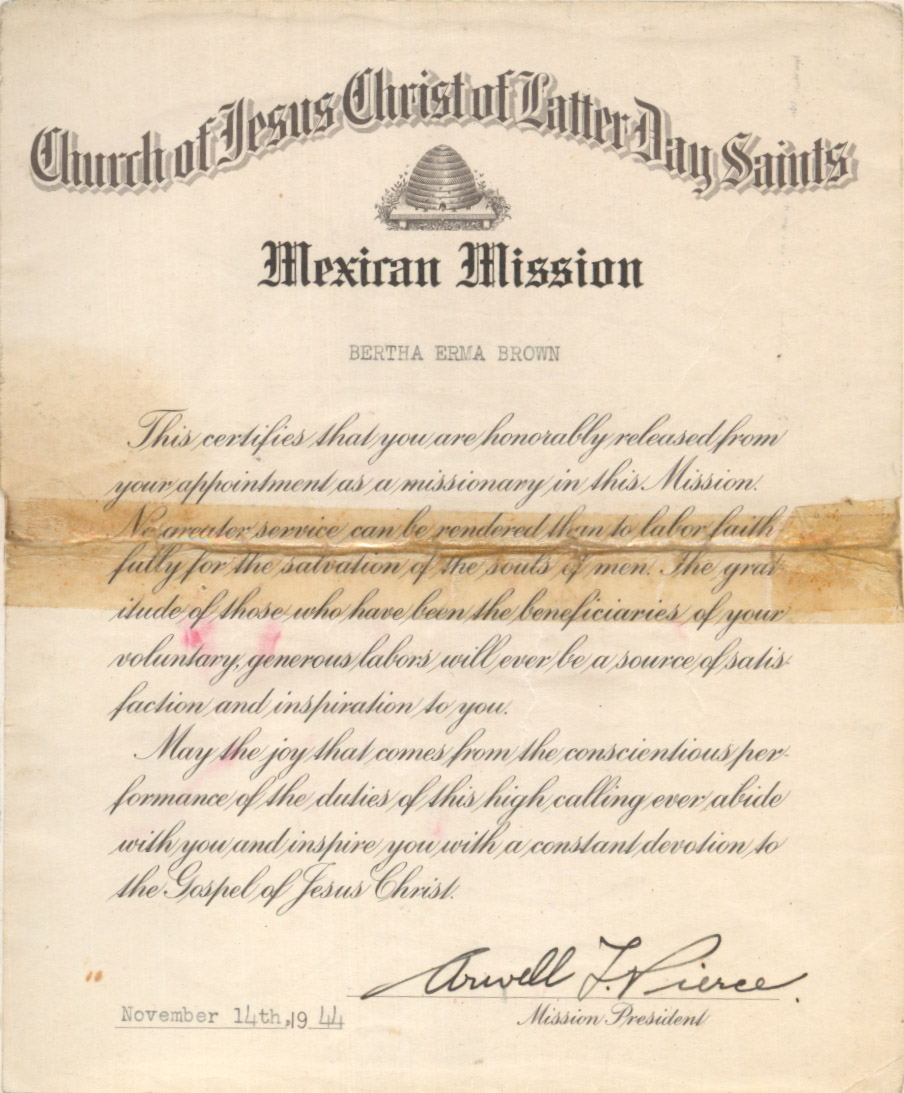 Church of Jesus Christ of Latter Day Saints
Mexican Mission
BERTHA ERMA BROWN
This certifies that you are honorably released from
your appointment as a missionary in this Mission.
No greater service can be rendered than to labor faith-
fully for the salvation of the souls of men. The grat-
itude of those who have been the beneficiaries of your
voluntary, generous labors will ever be a source of satis-
faction and inspiration to you.
May the joy that comes from the conscientious per-
formance of the duties of this high calling ever abide
with you and inspire you with a constant devotion to
the Gospel of Jesus Christ.
Arwell L. Pierce.
November 14th, 19 44
Mission President